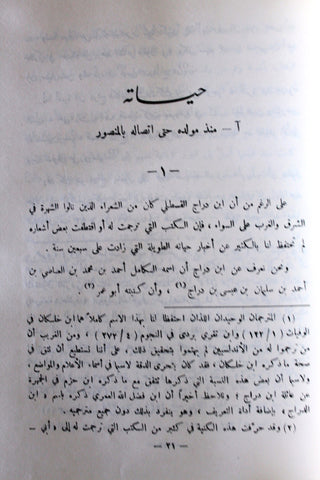 حياته
آ – منذ مولده حتى اتصاله بالمنصور
– ١ –
على الرغم من أن ابن دراج القسطلي كان من الشعراء الذين نالوا الشهرة في
الشرق والغرب على السواء ، فإن الكتب التي ترجمت له أو اقتطفت بعض أشعاره
لم تحتفظ لنا بالكثير عن أخبار حياته الطويلة التي زادت على سبعين سنة .
ونحن نعرف عن ابن دراج أن اسمه الكامل أحمد بن محمد بن العاصي بن
أحمد بن سليمان بن عيسى بن دراج (١) ، وأن كنيته أبو عمر (٢) .
(١) المترجمان الوحيدان اللذان احتفظا لنا بهذا الاسم كاملاً هما ابن خلكان في
الوفيات ( ١ / ١٢٢ ) وابن تغري بردي في النجوم ( ٤ / ٢٧٢ ) ، ومن الغريب أن
من ترجموا له من الأندلسيين لم يهتموا بتحقيق ذلك ، على أننا نستطيع أن نثق في
صحة ما ذكره ابن خلكان ، فقد كان يتحرى الدقة لاسيما في أسماء الأعلام والمواضع ،
ولاسيما أن بعض هذه النسبة التي ذكرها تتفق مع ما ذكره ابن حزم في الجمهرة
عن عائلة ابن دراج ؛ ونلاحظ أخيراً أن ابن فضل الله العمري ذكره باسم « ابن
الدراج » بإضافة أداة التعريف ، وهو ينفرد بذلك دون جميع مترجميه .
(٢) وقد حرفت هذه الكنية في كثير من الكتب التي ترجمت له إلى « أبي –
– ٣١ –